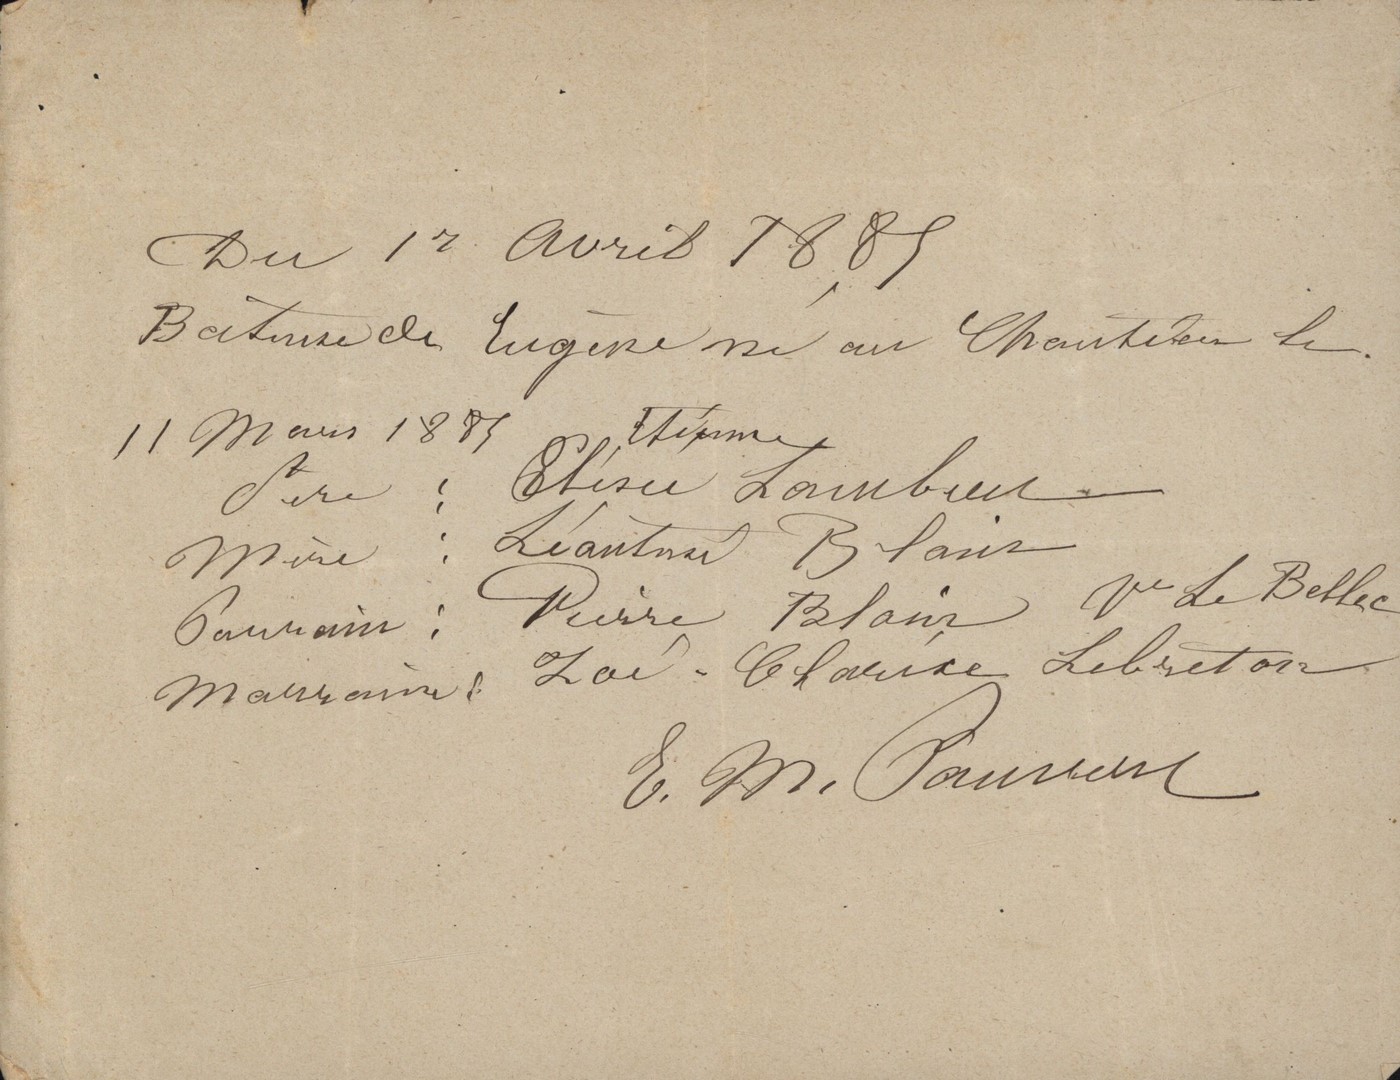 Du 1er Avril 1885
Batême de Eugène né au Chantier le
11 Mars 1885
Etienne
Père : Elisée Lambert
Mère : Léantine Blain
Parrain : Pierre Blain Ve Le Bellec
Marraine : Zoé - Clarisse Lebreton
E. M.